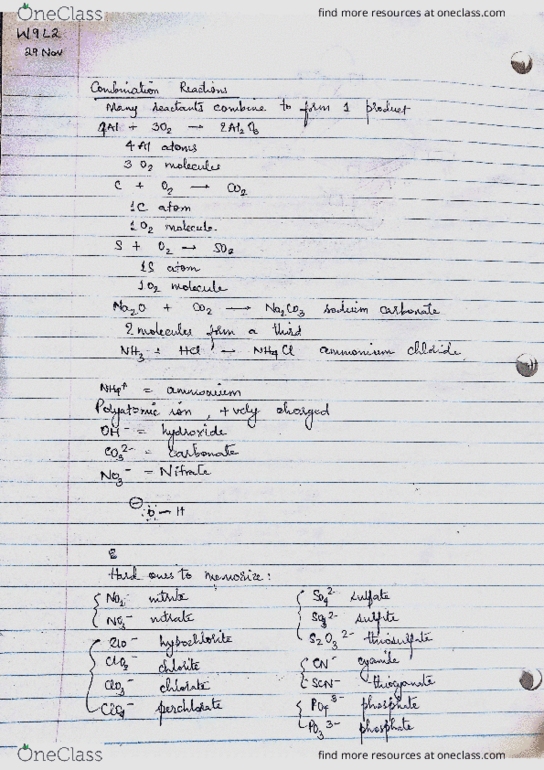 OneClass
find more resources at oneclass.com
W9L2
29 Nov
Combination Reactions
Many reactants combine to form 1 product
4Al + 3O₂ → 2Al₂O₃
4 Al atoms
3 O₂ molecules
C + O₂ → CO₂
1C atom
1 O₂ molecule.
S + O₂ → SO₂
1S atom
1O₂ molecule
Na₂O + CO₂ → Na₂CO₃ sodium carbonate
2 molecules form a third
NH₃ + HCl → NH₄Cl ammonium chloride
NH₄⁺ = ammonium
Polyatomic ion, +vely charged
OH⁻ = hydroxide
CO₃²⁻ = Carbonate
NO₃⁻ = Nitrate
⊖
O – H
Hard ones to memorize:
NO₂⁻ nitrite
NO₃⁻ nitrate
ClO⁻ hypochlorite
ClO₂⁻ chlorite
ClO₃⁻ chlorate
ClO₄⁻ perchlorate
SO₄²⁻ sulfate
SO₃²⁻ sulfite
S₂O₃²⁻ thiosulfate
CN⁻ cyanide
SCN⁻ thiocyanate
PO₄³⁻ phosphate
PO₃³⁻ phosphate
OneClass
find more resources at oneclass.com